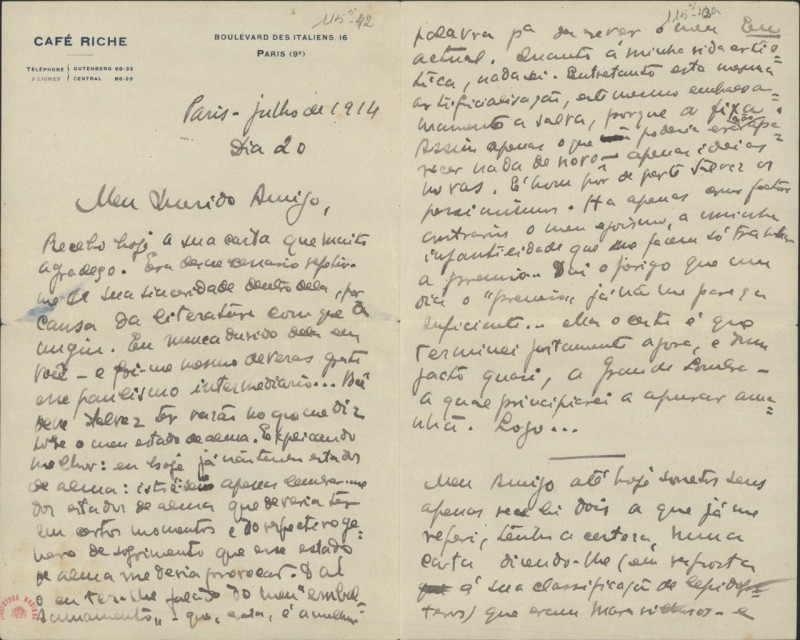 115⁵-42
CAFÉ RICHE
BOULEVARD DES ITALIENS, 16
PARIS (9ᵉ)
TÉLÉPHONE GUTENBERG 68-33
2 LIGNES CENTRAL 86-29
Paris - julho de 1914
Dia 20
Meu Querido Amigo,
Recebo hoje a sua carta que muito
agradeço. Era desnecessario repetir-
me de sua sinceridade dentro dela, por
causa da literatura com que a
ungiu. Eu nunca duvido dela em
você - e foi-me mesmo deveras grato
esse paulismo intermediario...
deve talvez ter razão no que me diz
sobre o meu estado de alma. Explicando
melhor: eu hoje já não tenho estados
de alma: isto é apenas lembrar-me
dos estados de alma que deveria ter
em certos momentos e do respectivo ge=
nero de sofrimento que esse estado
de alma me devia provocar. Daí
o eu ter-lhe falado do meu "embal=
samamento" - que, esta, é a melhor
palavra pa descrever o meu Eu
actual. Quanto á minha vida artis=
tica, nada sei. Entretanto esta mesma
artificialisação, este mesmo embalsa-
mamento a salva, porque a fixa.
Assim apenas o que não poderia é
recer nada de novo - apenas ideias
novas. É bom pôr de parte talvez os
pessimismos. Ha apenas que
contrarios o meu egoismo, a minha
infantilidade que me fazem só trabalhar
a premio... Daí o perigo que um
dia o "premio" já não me pareça
suficiente... Mas o certo é que
terminei justamente agora, e dum
jacto quasi, a Grande Sombra -
a qual principiarei a apurar ama=
nhã. Logo...
Meu Amigo até hoje sonetos seus
apenas recebi dois a que já me
referi, tenho a certeza, numa
carta dizendo-lhe (em resposta
á sua classificação de lepidop=
teros) que eram maravilhosos - e